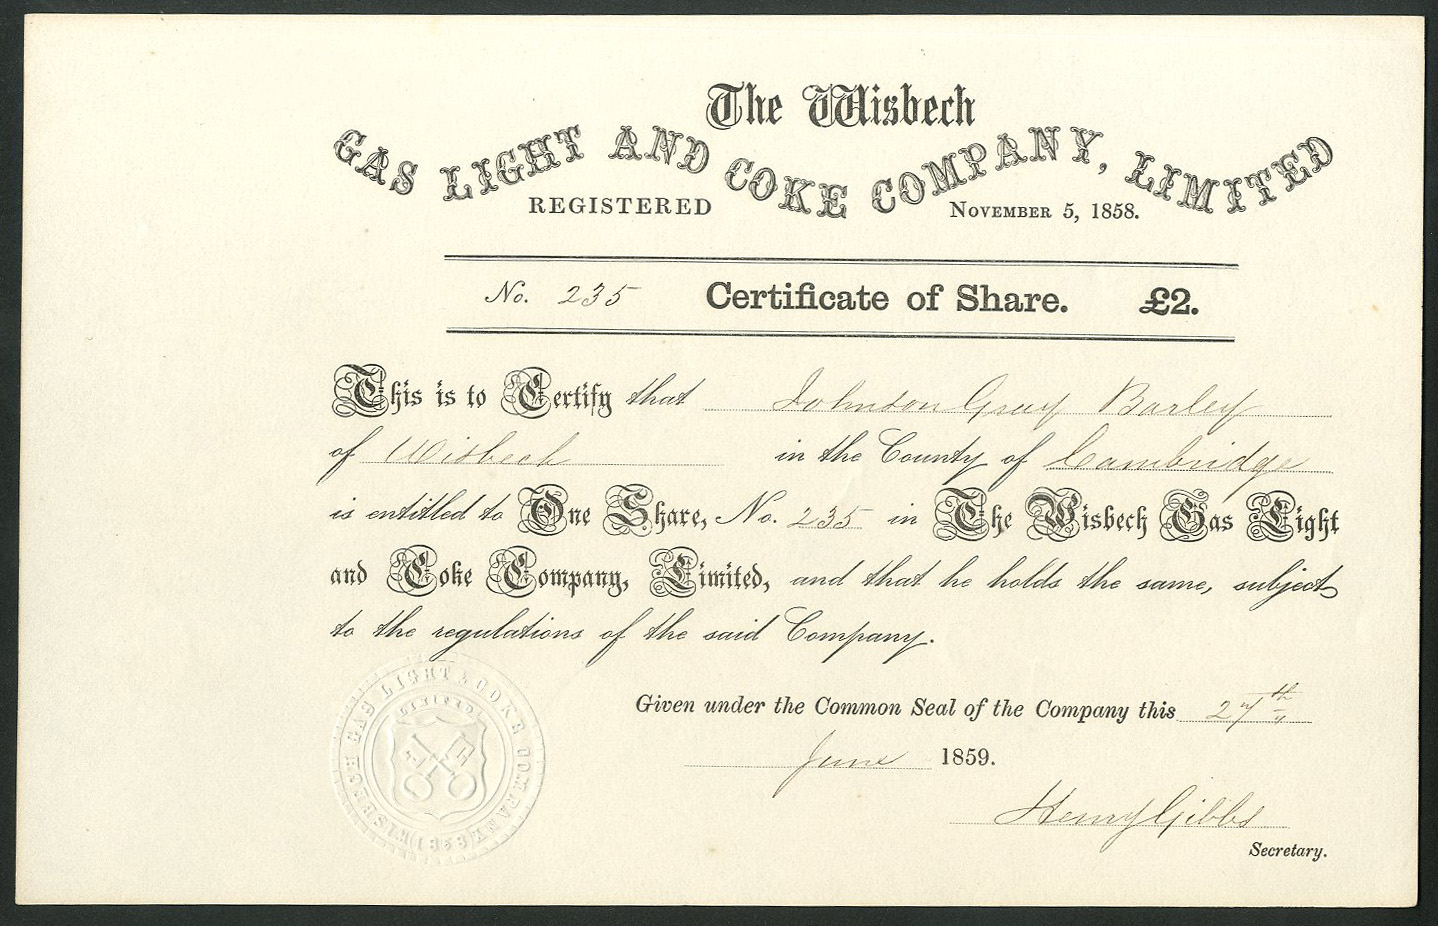 The Wisbech
GAS LIGHT AND COKE COMPANY, LIMITED
REGISTERED NOVEMBER 5, 1858.
No. 235 Certificate of Share. £2.
This is to Certify that Johnson Gray Barley
of Wisbech in the County of Cambridge
is entitled to One Share, No. 235 in The Wisbech Gas Light
and Coke Company, Limited, and that he holds the same, subject
to the regulations of the said Company.
Given under the Common Seal of the Company this 27th
June 1859.
Henry Gibbs
Secretary.
WISBECH GAS LIGHT & COKE COMPANY
LIMITED
1858